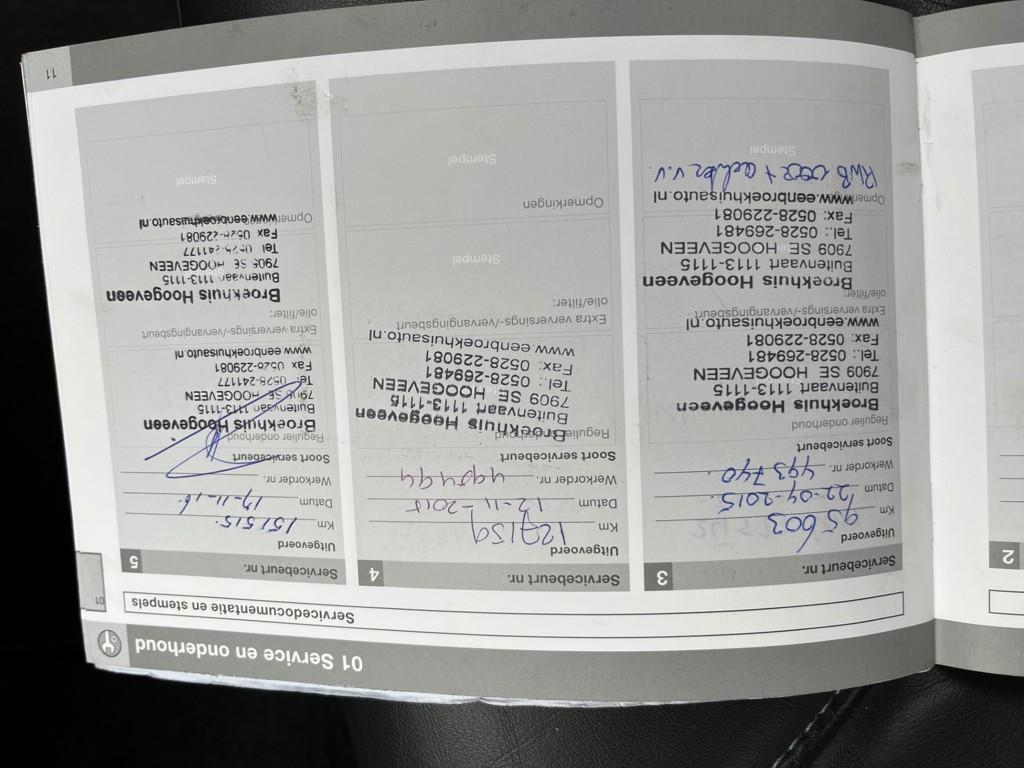 01 Service en onderhoud
01
Servicedocumentatie en stempels
2
Servicebeurt nr. 3
Uitgevoerd
Km 95603
Datum 22-04-2015.
Werkorder nr. 493740.
Soort servicebeurt
Regulier onderhoud
Broekhuis Hoogeveen
Buitenvaart 1113-1115
7909 SE HOOGEVEEN
Tel.: 0528-269481
Fax: 0528-229081
www.eenbroekhuisauto.nl
Extra verversings-/vervangingsbeurt
olie/filter:
Broekhuis Hoogeveen
Buitenvaart 1113-1115
7909 SE HOOGEVEEN
Tel.: 0528-269481
Fax: 0528-229081
www.eenbroekhuisauto.nl
Opmerkingen
RWB + achter v.v.
Stempel
Servicebeurt nr. 4
Uitgevoerd
Km 127159
Datum 12-11-2015
Werkorder nr.
Soort servicebeurt
Regulier onderhoud
Broekhuis Hoogeveen
Buitenvaart 1113-1115
7909 SE HOOGEVEEN
Tel.: 0528-269481
Fax: 0528-229081
www.eenbroekhuisauto.nl
Extra verversings-/vervangingsbeurt
olie/filter:
Stempel
Opmerkingen
Stempel
Servicebeurt nr. 5
Uitgevoerd
Km 151515.
Datum 17-11-16
Werkorder nr.
Soort servicebeurt
Regulier onderhoud
Broekhuis Hoogeveen
Buitenvaart 1113-1115
7905 SE HOOGEVEEN
Tel 0528-241177
Fax 0528-229081
www eenbroekhuisauto nl
Extra verversings-/vervangingsbeurt
olie/filter:
Broekhuis Hoogeveen
Buitenvaart 1113-1115
7905 SE HOOGEVEEN
Tel 0528-241177
Fax 0528-229081
www.eenbroekhuisauto.nl
Opmerkingen
Stempel
11